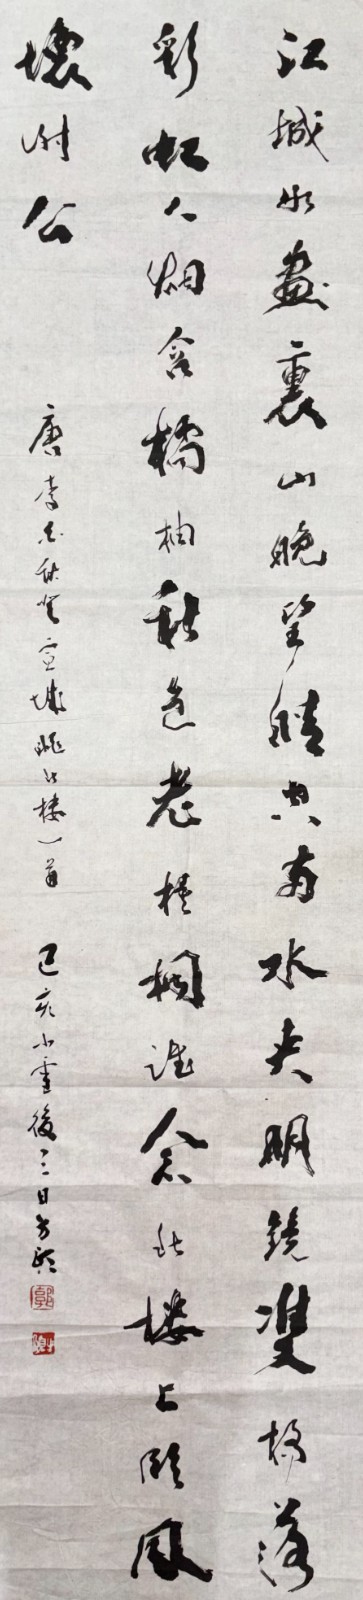 江城如畫裏山晚望晴空兩水夾明鏡雙橋落
彩虹人烟含橘柚秋色老梧桐誰念北樓上臨風
懷謝公
唐李白秋登宣城朓北樓一首 己亥小雪後三日